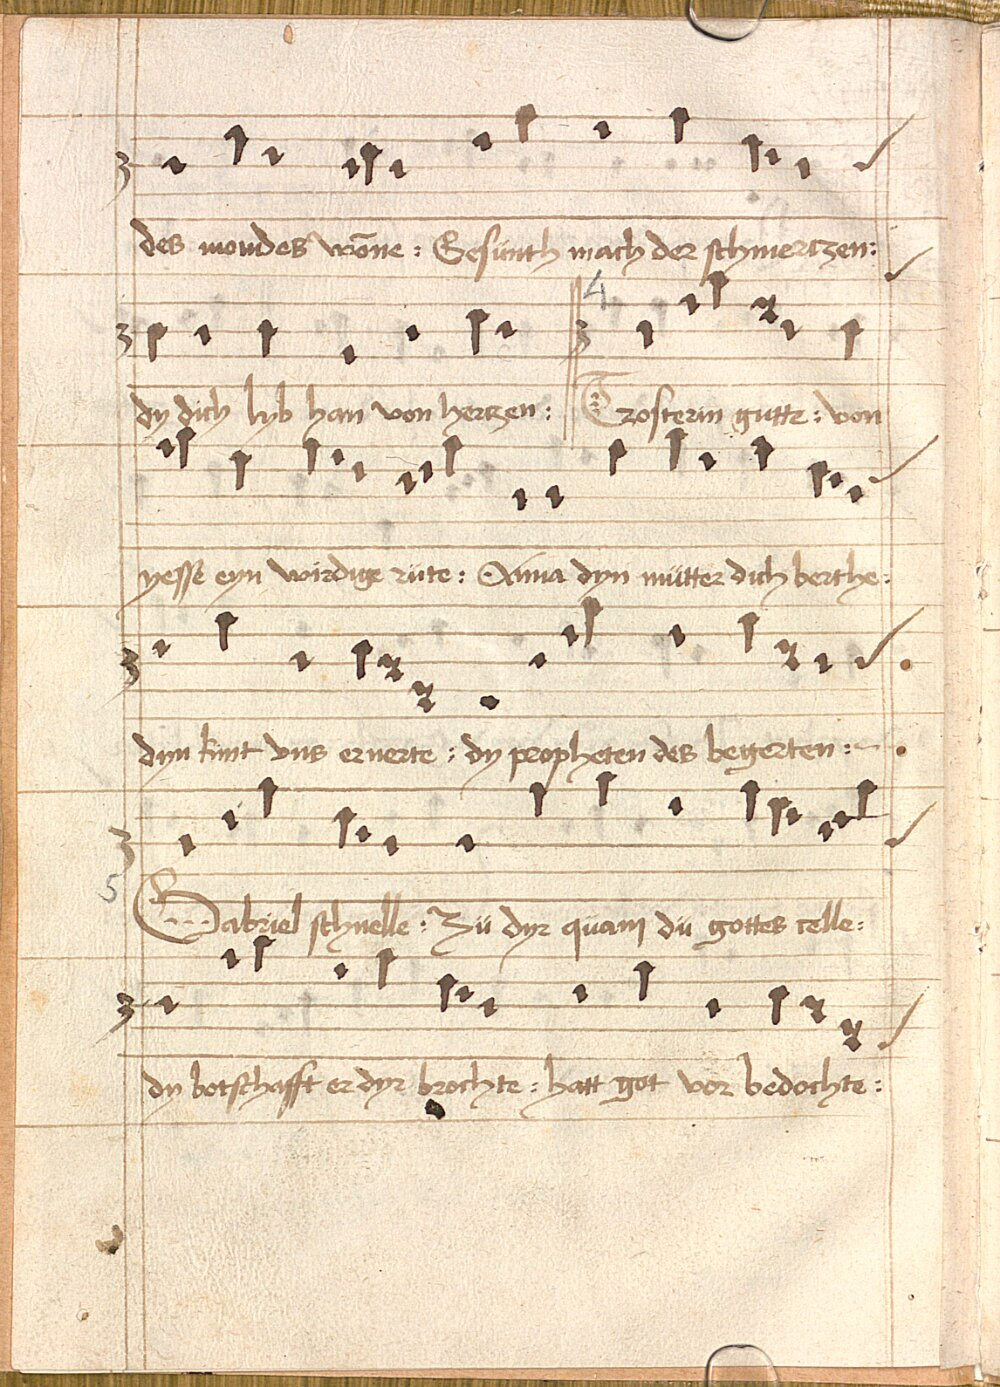 des mondes wōne : Gesünth mach der schmertzen:
4
dy dich lyb han von hertzen : Trosterin gutte : von
yesse eyn wirdige rüte : Anna dyn mütter dich berthe:
dyn kint vns ernerte : dy propheten des begerten :
5
Gabriel schnelle : Zü dyr quam dü gottes celle:
dy botschafft er dyr brochte : hatt got vor bedochte :